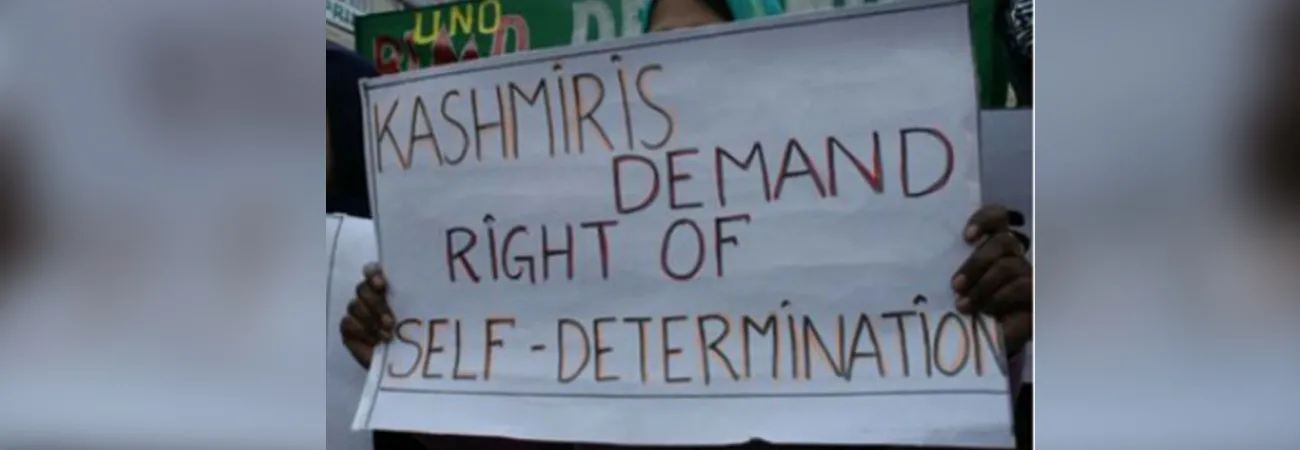 UNO
KASHMIRIS
DEMAND
RIGHT OF
SELF-DETERMINATION